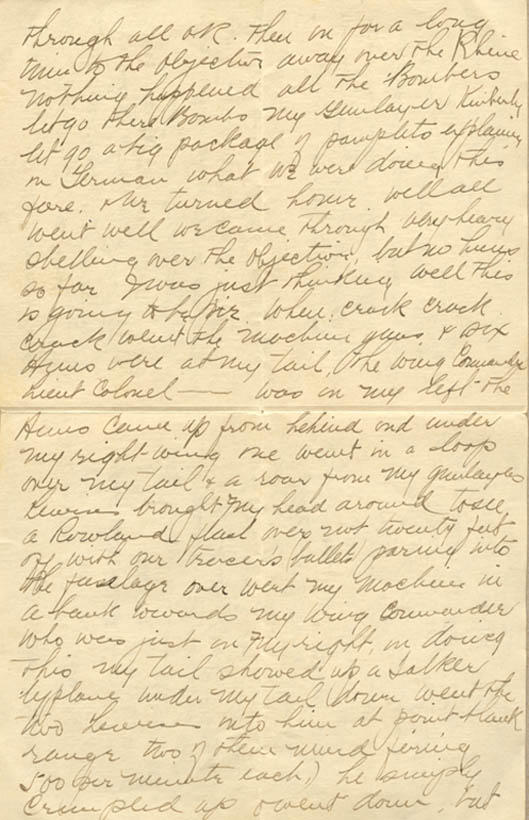 through all OK. then on for a long
time to the objective away over the Rhine
nothing happened all the Bombers
let go there Bombs my gunlayer Kimberly
let go a big package of pamplets explaining
in German what we were doing this
fore. & we turned home. well all
went well we came through very heavy
shelling over the objective, but no huns
so far I was just thinking well this
is going to be when, crack crack
crack went the machine guns & six
Huns were at my tail, the Wing Commander
Lieut Colonel — was on my left the
Huns came up from behind and under
my right wing one went in a loop
over my tail & a roar from my gunlayers
Lewises brought my head around to see
a Rowland flash over not twenty feet
off with our tracers bullets poring into
the fuselage over went my machine in
a bank towards my Wing Commander
who was just on my right, in doing
this my tail showed up a
under my tail down went the
two Lewises into him at point blank
range two of them firing
500 per minute each) he simply
crumpled up & went down, but